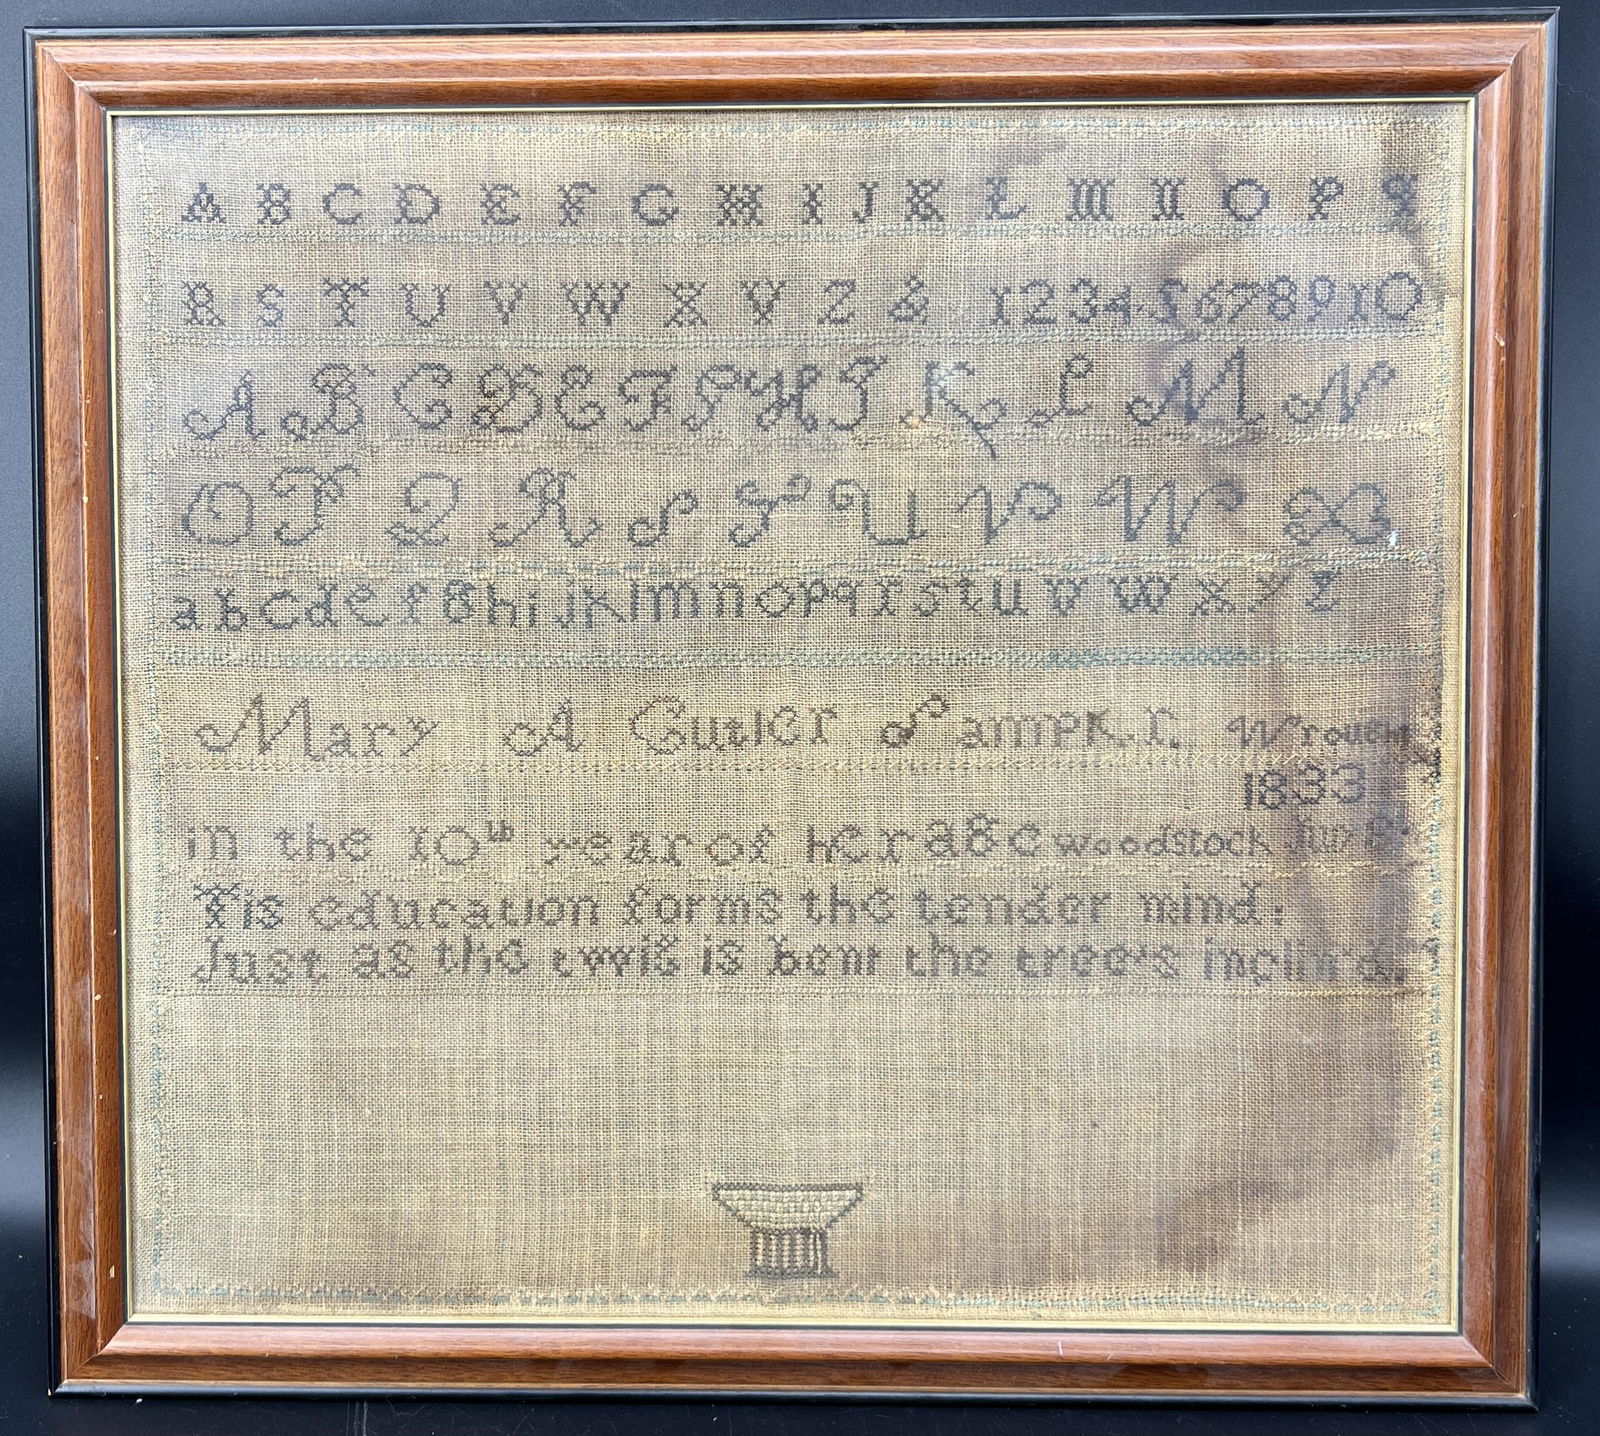 A B C D E F G H I J K L M N O P Q
R S T U V W X Y Z & 1 2 3 4 5 6 7 8 9 10
A B C D E F G H J K L M N
O P Q R S T U V W X
a b c d e f g h i j k l m n o p q r s t u v w x y z
Mary A Cutler Sampler Wrought
1833
in the 10th year of her age Woodstock
Tis education forms the tender mind:
Just as the twig is bent the tree's inclin'd.